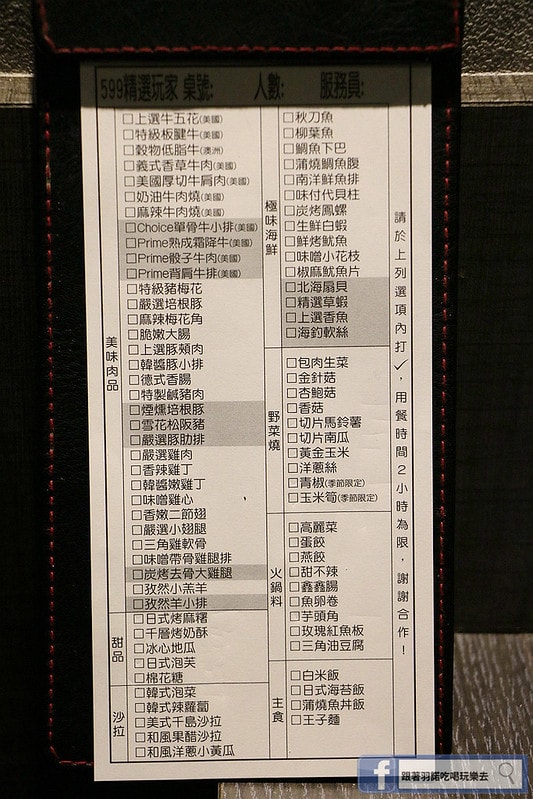 599精選玩家 桌號: 人數: 服務員:
美味肉品
□上選牛五花(美國)
□特級板腱牛(美國)
□穀物低脂牛(澳洲)
□義式香草牛肉(美國)
□美國厚切牛肩肉(美國)
□奶油牛肉燒(美國)
□麻辣牛肉燒(美國)
□Choice單骨牛小排(美國)
□Prime熟成霜降牛(美國)
□Prime骰子牛肉(美國)
□Prime背肩牛排(美國)
□特級豬梅花
□嚴選培根豚
□麻辣梅花角
□脆嫩大腸
□上選豚頰肉
□韓醬豚小排
□德式香腸
□特製鹹豬肉
□煙燻培根豚
□雪花松阪豬
□嚴選豚肋排
□嚴選雞肉
□香辣雞丁
□韓醬嫩雞丁
□味噌雞心
□香嫩二節翅
□嚴選小翅腿
□三角雞軟骨
□味噌帶骨雞腿排
□炭烤去骨大雞腿
□孜然小羔羊
□孜然羊小排
甜品
□日式烤麻糬
□千層烤奶酥
□冰心地瓜
□日式泡芙
□棉花糖
沙拉
□韓式泡菜
□韓式辣蘿蔔
□美式千島沙拉
□和風果醋沙拉
□和風洋蔥小黃瓜
極味海鮮
□秋刀魚
□柳葉魚
□鯛魚下巴
□蒲燒鯛魚腹
□南洋鮮魚排
□味付代貝柱
□炭烤鳳螺
□生鮮白蝦
□鮮烤魷魚
□味噌小花枝
□椒麻魷魚片
□北海扇貝
□精選草蝦
□上選香魚
□海釣軟絲
野菜燒
□包肉生菜
□金針菇
□杏鮑菇
□香菇
□切片馬鈴薯
□切片南瓜
□黃金玉米
□洋蔥絲
□青椒(季節限定)
□玉米筍(季節限定)
火鍋料
□高麗菜
□蛋餃
□燕餃
□甜不辣
□鑫鑫腸
□魚卵卷
□芋頭角
□玫瑰紅魚板
□三角油豆腐
主食
□白米飯
□日式海苔飯
□蒲燒魚丼飯
□王子麵
請於上列選項內打✓,用餐時間2小時為限,謝謝合作!
f 跟著羽諾吃喝玩樂去